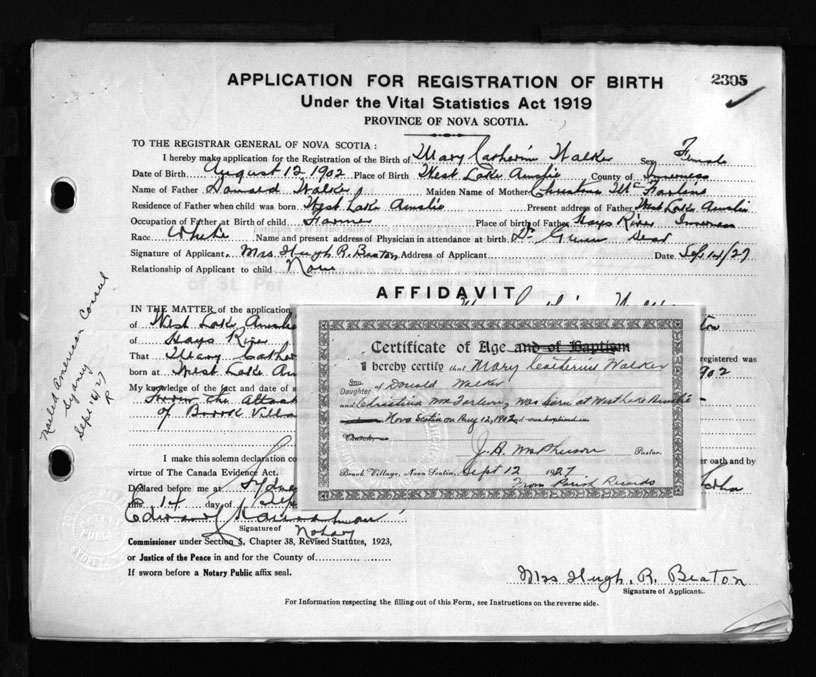 APPLICATION FOR REGISTRATION OF BIRTH 2305
Under the Vital Statistics Act 1919
PROVINCE OF NOVA SCOTIA.
TO THE REGISTRAR GENERAL OF NOVA SCOTIA :
I hereby make application for the Registration of the Birth of Mary Catherin Walker Sex Female
Date of Birth August 12 1902 Place of Birth West Lake Ainslie County of Inverness
Name of Father Donald Walker Maiden Name of Mother Christina McFarlane
Residence of Father when child was born West Lake Ainslie Present address of Father West Lake Ainslie
Occupation of Father at Birth of child Farmer Place of birth of Father Hays River Inverness
Race White Name and present address of Physician in attendance at birth. Dr Dead
Signature of Applicant. Mrs. Hugh R. Beaton Address of Applicant Date. Sep 14/27
Relationship of Applicant to child None
AFFIDAVIT
IN THE MATTER of the application
of West Lake Ainslie
of Hays River
That Mary Cather registered was
born at West Lake Ain 902
My knowledge of the fact and date of s
from the Attach
of Brook Villa
I make this solemn declaration co er oath and by
virtue of The Canada Evidence Act.
Declared before me at Sydney
this 14 day of Sep
Signature of Notary
Commissioner under Section 5, Chapter 38, Revised Statutes, 1923,
or Justice of the Peace in and for the County of
If sworn before a Notary Public affix seal.
Mrs Hugh. R. Beaton
Signature of Applicant.
For Information respecting the filling out of this Form, see Instructions on the reverse side.
Mailed American Consul
Sydney
Sept 16/27
R
Certificate of Age and of Baptism
I hereby certify that Mary Catherine Walker
Son
Daughter of Donald Walker
and Christina McFarlane, was born at West Lake Ainslie
Nova Scotia on Aug 12, 1902 and was baptized in
Church
J. A. McPherson Pastor.
Brook Village, Nova Scotia, Sept 12 1927
From Parish Records